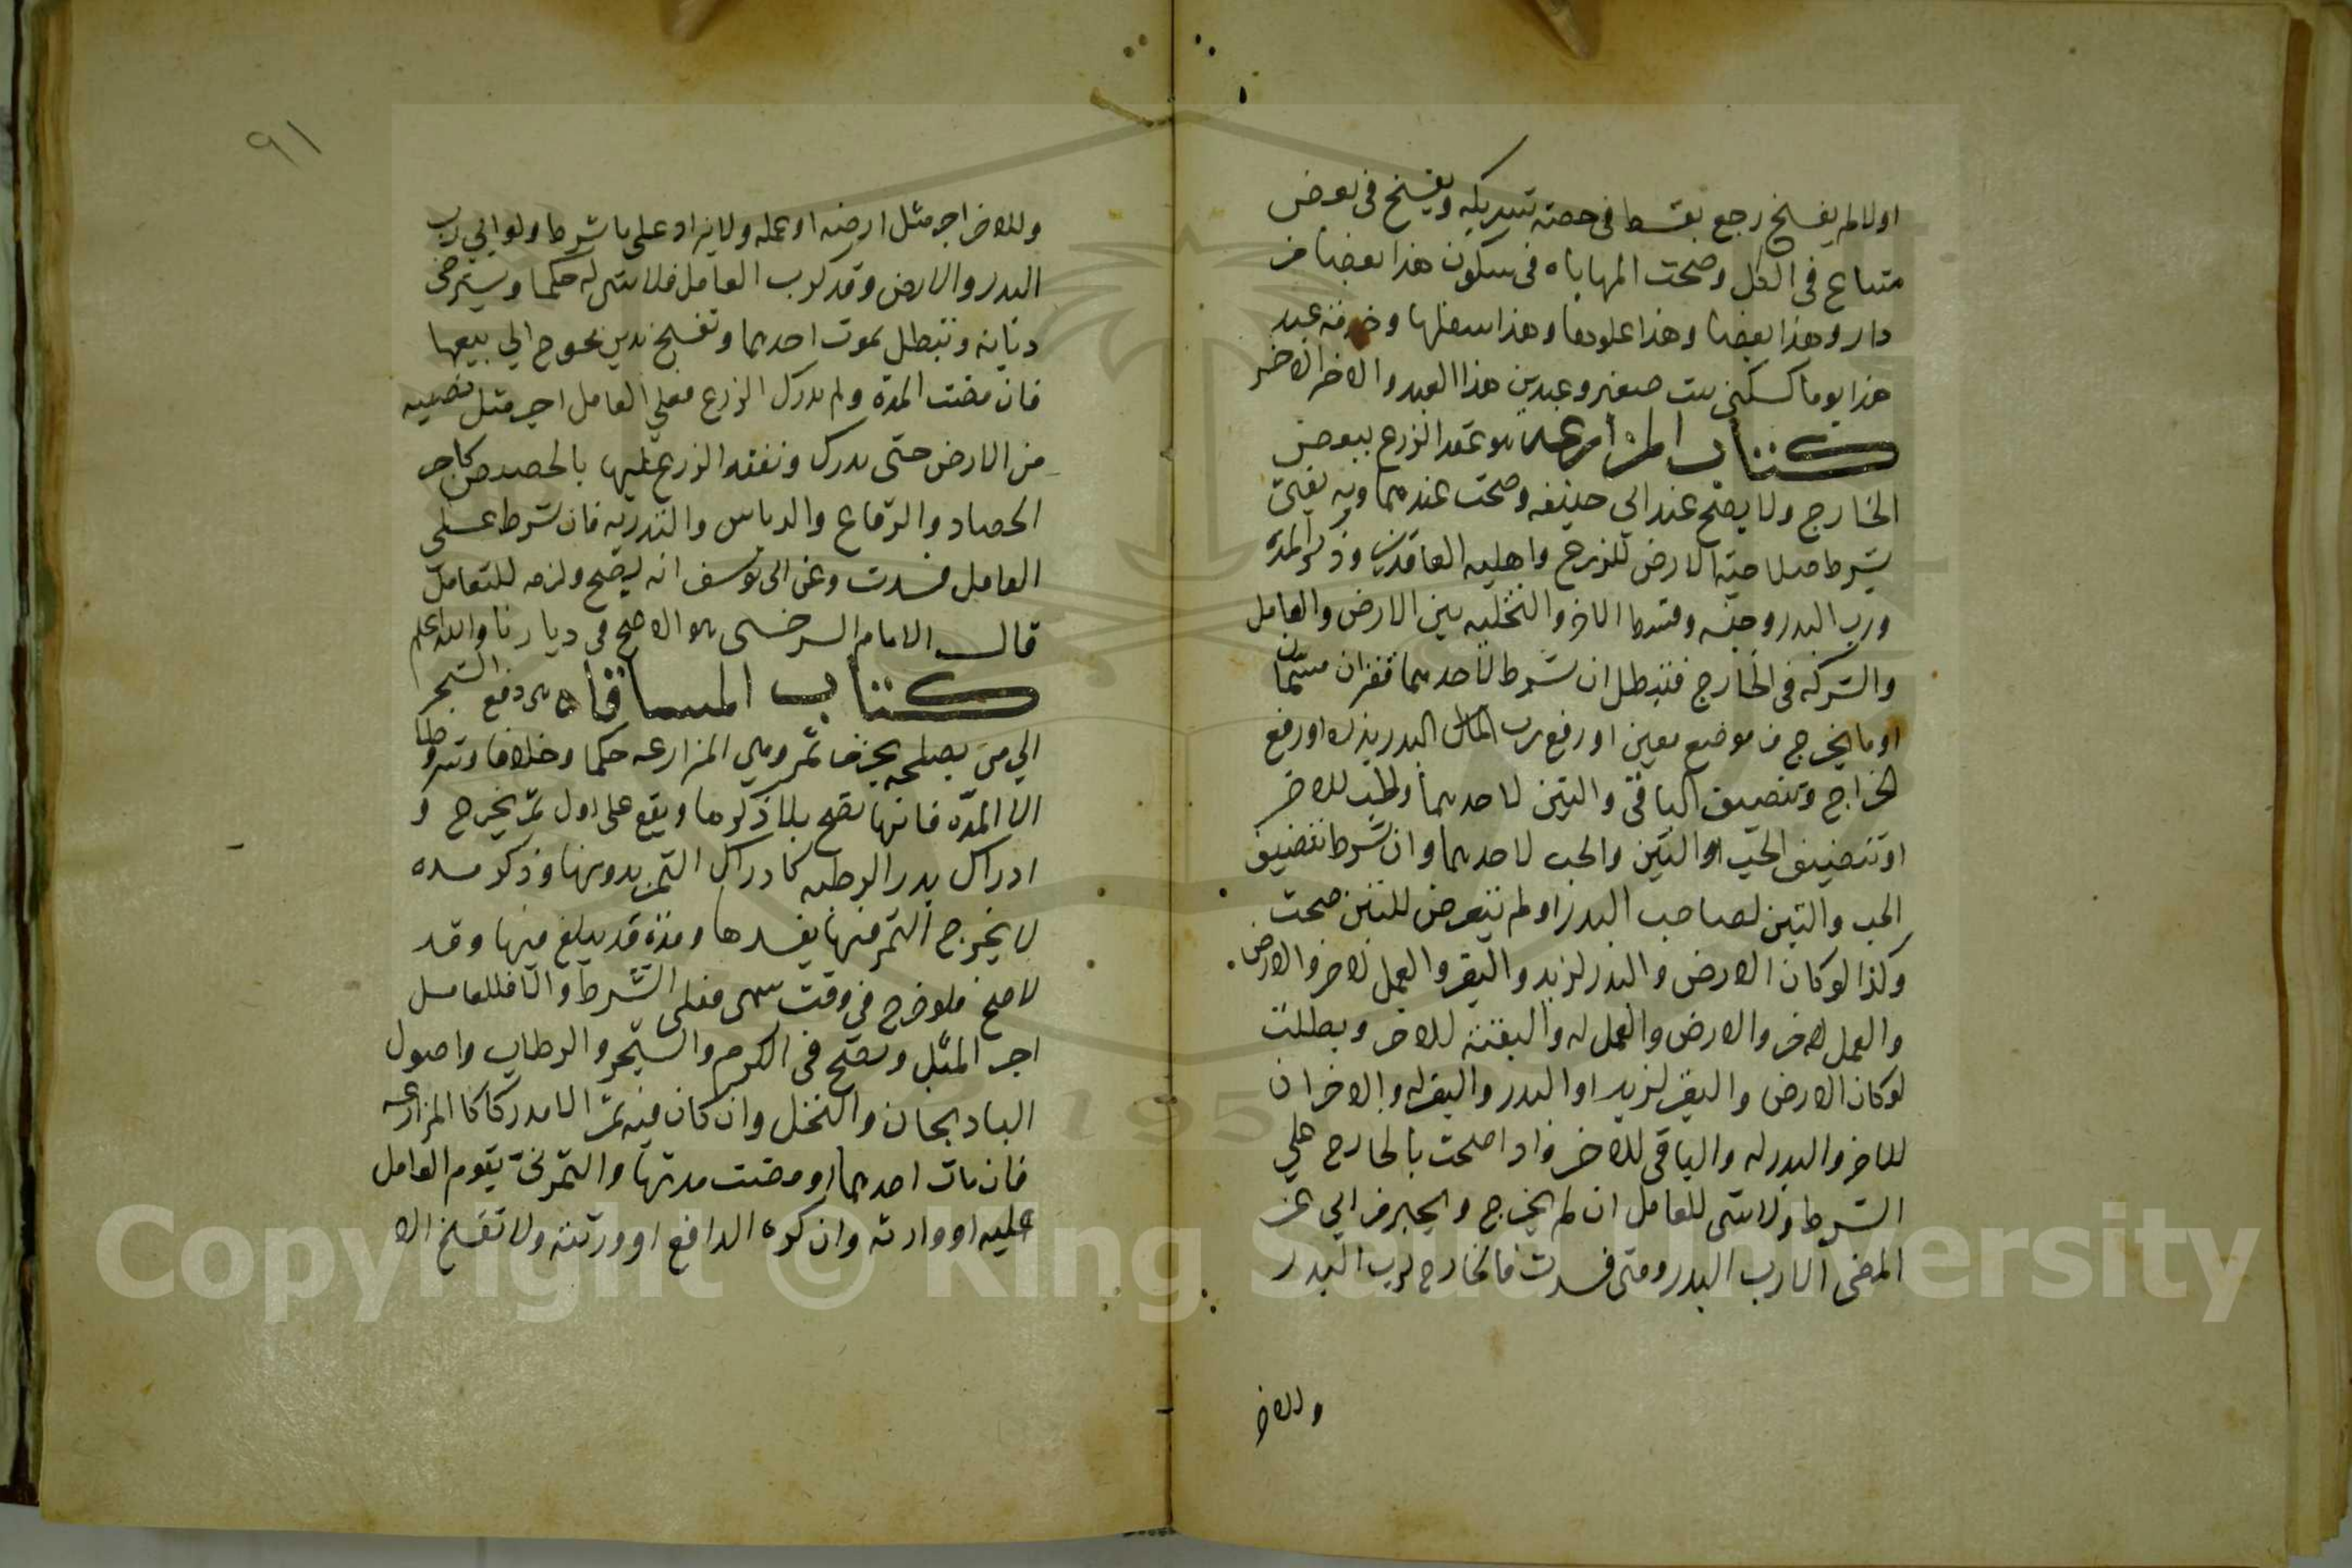 اولا لم يفسخ رجع بقسط فى حصته شريكه ويفسخ فى بعض
متاع فى الكل وصحت المهاياه فى سكون هذا بعضا من
دار وهذا بعضا وهذا علوها وهذا سفلها وخدمة عبد
هذا يوما كسكنى بيت صغير وعبدين هذا العبد والاخر الاخر
كتاب المزارعه هو عقد الزرع ببعض
الخارج ولا يصح عند ابي حنيفه وصحت عندهما وبه يفتى
بشرط صلاحية الارض للزرع واهليه العاقدين وذكر المدة
ورب البدر وجنسه وقسط الاخر والتخليه بين الارض والعامل
والشركه فى الخارج فتبطل ان شرط لاحدهما قفزان مسمان
او ما يخرج من موضع معين او رفع رب المال البدر بذره او رفع
الخراج وتنصيف الباقى والتبن لاحدهما ولحب للاخر
او تنصيف الحب او التبن والحب لاحدهما وان شرط تنصيف
الحب والتبن لصاحب البدر او لم يتعرض للتبن صحت
وكذا لو كان الارض والبدر لزيد والبقر والعمل لاخر والارض
والعمل لاخر والارض والعمل له والبقية للاخر وبطلت
لو كان الارض والبقر لزيد او البدر والبقر له والاخران
للاخر والبدر له والباقى للاخر واذا صحت بالخارج على
الشرط ولا شى للعامل ان لم يخرج ويجبر من ابي عن
المضى الا رب البدر ومتى فسدت فالخارج لرب البدر
وللاخر
٩١
وللاخر اجر مثل ارضه او عمله ولا يزاد على ما شرط ولو ابي رب
البدر والارض وقد كرب العامل فلا شى له حكما ويسترضى
ديانة وتبطل بموت احدهما وتفسخ بدين محوج الي بيعها
فان مضت المدة ولم يدرك الزرع فعلي العامل اجر مثل نصيبه
من الارض حتى يدرك ونفقه الزرع عليها بالحصص كاجر
الحصاد والرفاع والدياس والتدريه فان شرط على
العامل فسدت وعن ابى يوسف انه يصح ولزمه للتعامل
قال الامام السرخسى هو الاصح فى ديارنا والله اعلم
كتاب المساقاه هى دفع الشجر
الي من يصلحه بجزء ثمره وهي المزارعه حكما وخلافا وشروطا
الا المدة فانها تصح بلا ذكرها ويقع على اول ثمر يخرج و
ادراك بدر الرطبه كادراك الثمر بدونها وذكر مده
لا يخرج الثمر فيها يفسدها ومدة قد يبلغ فيها وقد
لا صح فلو خرج فى وقت سمى فعلى الشرط والا فللعامل
اجر المثل وتصح فى الكرم والشجر والرطاب واصول
البادنجان والنخل وان كان فيه ثمر الا مدركا كالمزارعه
فان مات احدهما او مضت مدتها والثمر نى يقوم العامل
عليه او وارثه وان كره الدافع او ورثته ولا تفسخ الا
Copyright © King Saud University
195